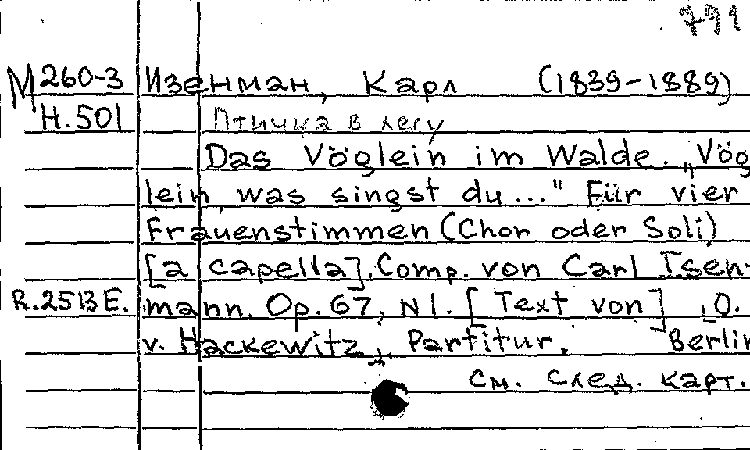 791
М 260-3 Изенман, Карл (1839-1889)
Н.501 Птичка в лесу
Das Vöglein im Walde. „Vög
lein, was singst du..." Für vier
Frauenstimmen (Chor oder Soli)
[a capella]. Comp. von Carl Isen-
R.2513E. mann. Op. 67, N1. [Text von] O.
v. Hackewitz. Partitur. Berlin
См. след. карт.